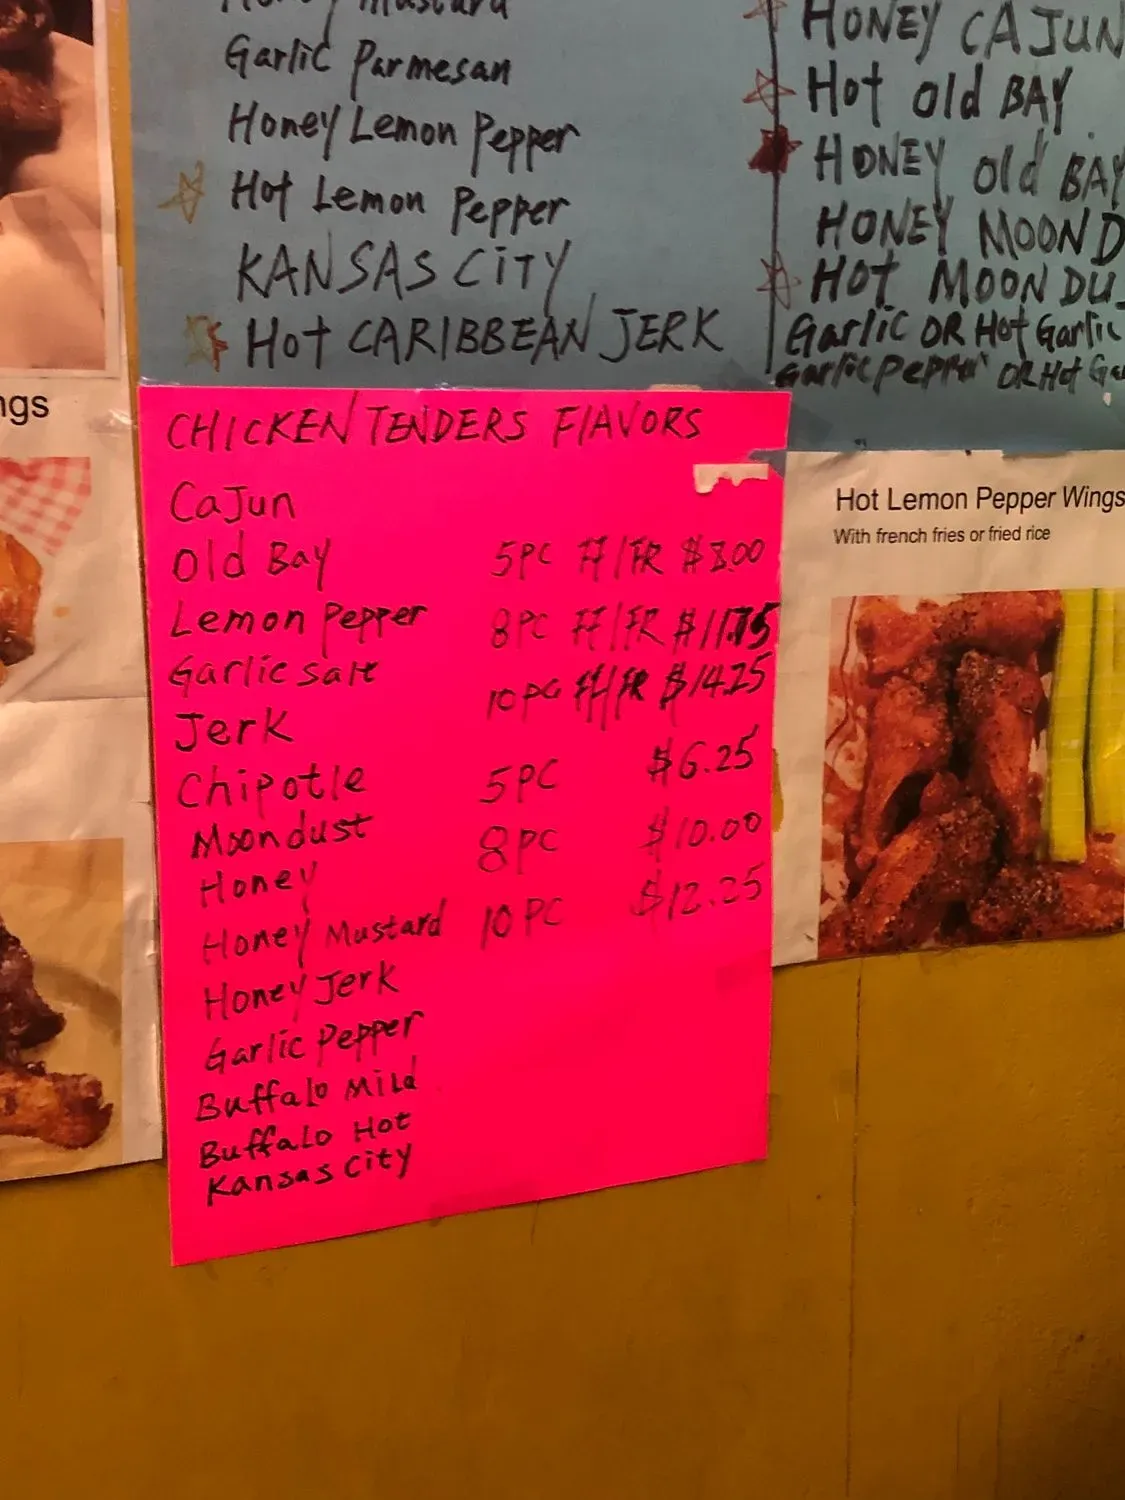 Honey Mustard
Garlic Parmesan
Honey Lemon Pepper
Hot Lemon Pepper
KANSAS CiTY
Hot CARIBBEAN JERK
HONEY CAJUN
Hot Old BAY
HONEY Old BAY
HONEY MOOND
HOT MOONDU
Garlic OR Hot Garlic
Garlic pepper OR Hot Ga
ngs
CHICKEN TENDERS FLAVORS
CaJun
Old Bay 5PC FF/FR $8.00
Lemon Pepper 8PC FF/FR $11.75
Garlic Salt 10PC FF/FR $14.25
Jerk
Chipotle 5PC $6.25
Moondust 8PC $10.00
Honey
Honey Mustard 10PC $12.25
Honey Jerk
Garlic Pepper
Buffalo Mild
Buffalo Hot
Kansas City
Hot Lemon Pepper Wings
With french fries or fried rice